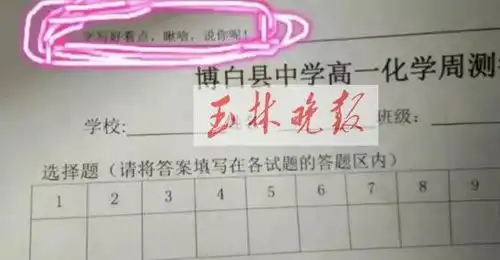 字写好看点，瞅啥，说你呢！
博白县中学高一化学周测
玉林晚报
学校: 班级:
选择题（请将答案填写在各试题的答题区内）
1 2 3 4 5 6 7 8 9